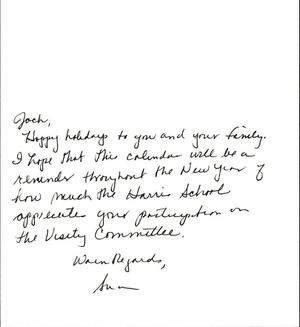 Jack,
Happy holidays to you and your family.
I hope that this calendar will be a
reminder throughout the New Year of
how much the Harris School
appreciates your participation on
the Visiting Committee.
Warm Regards,